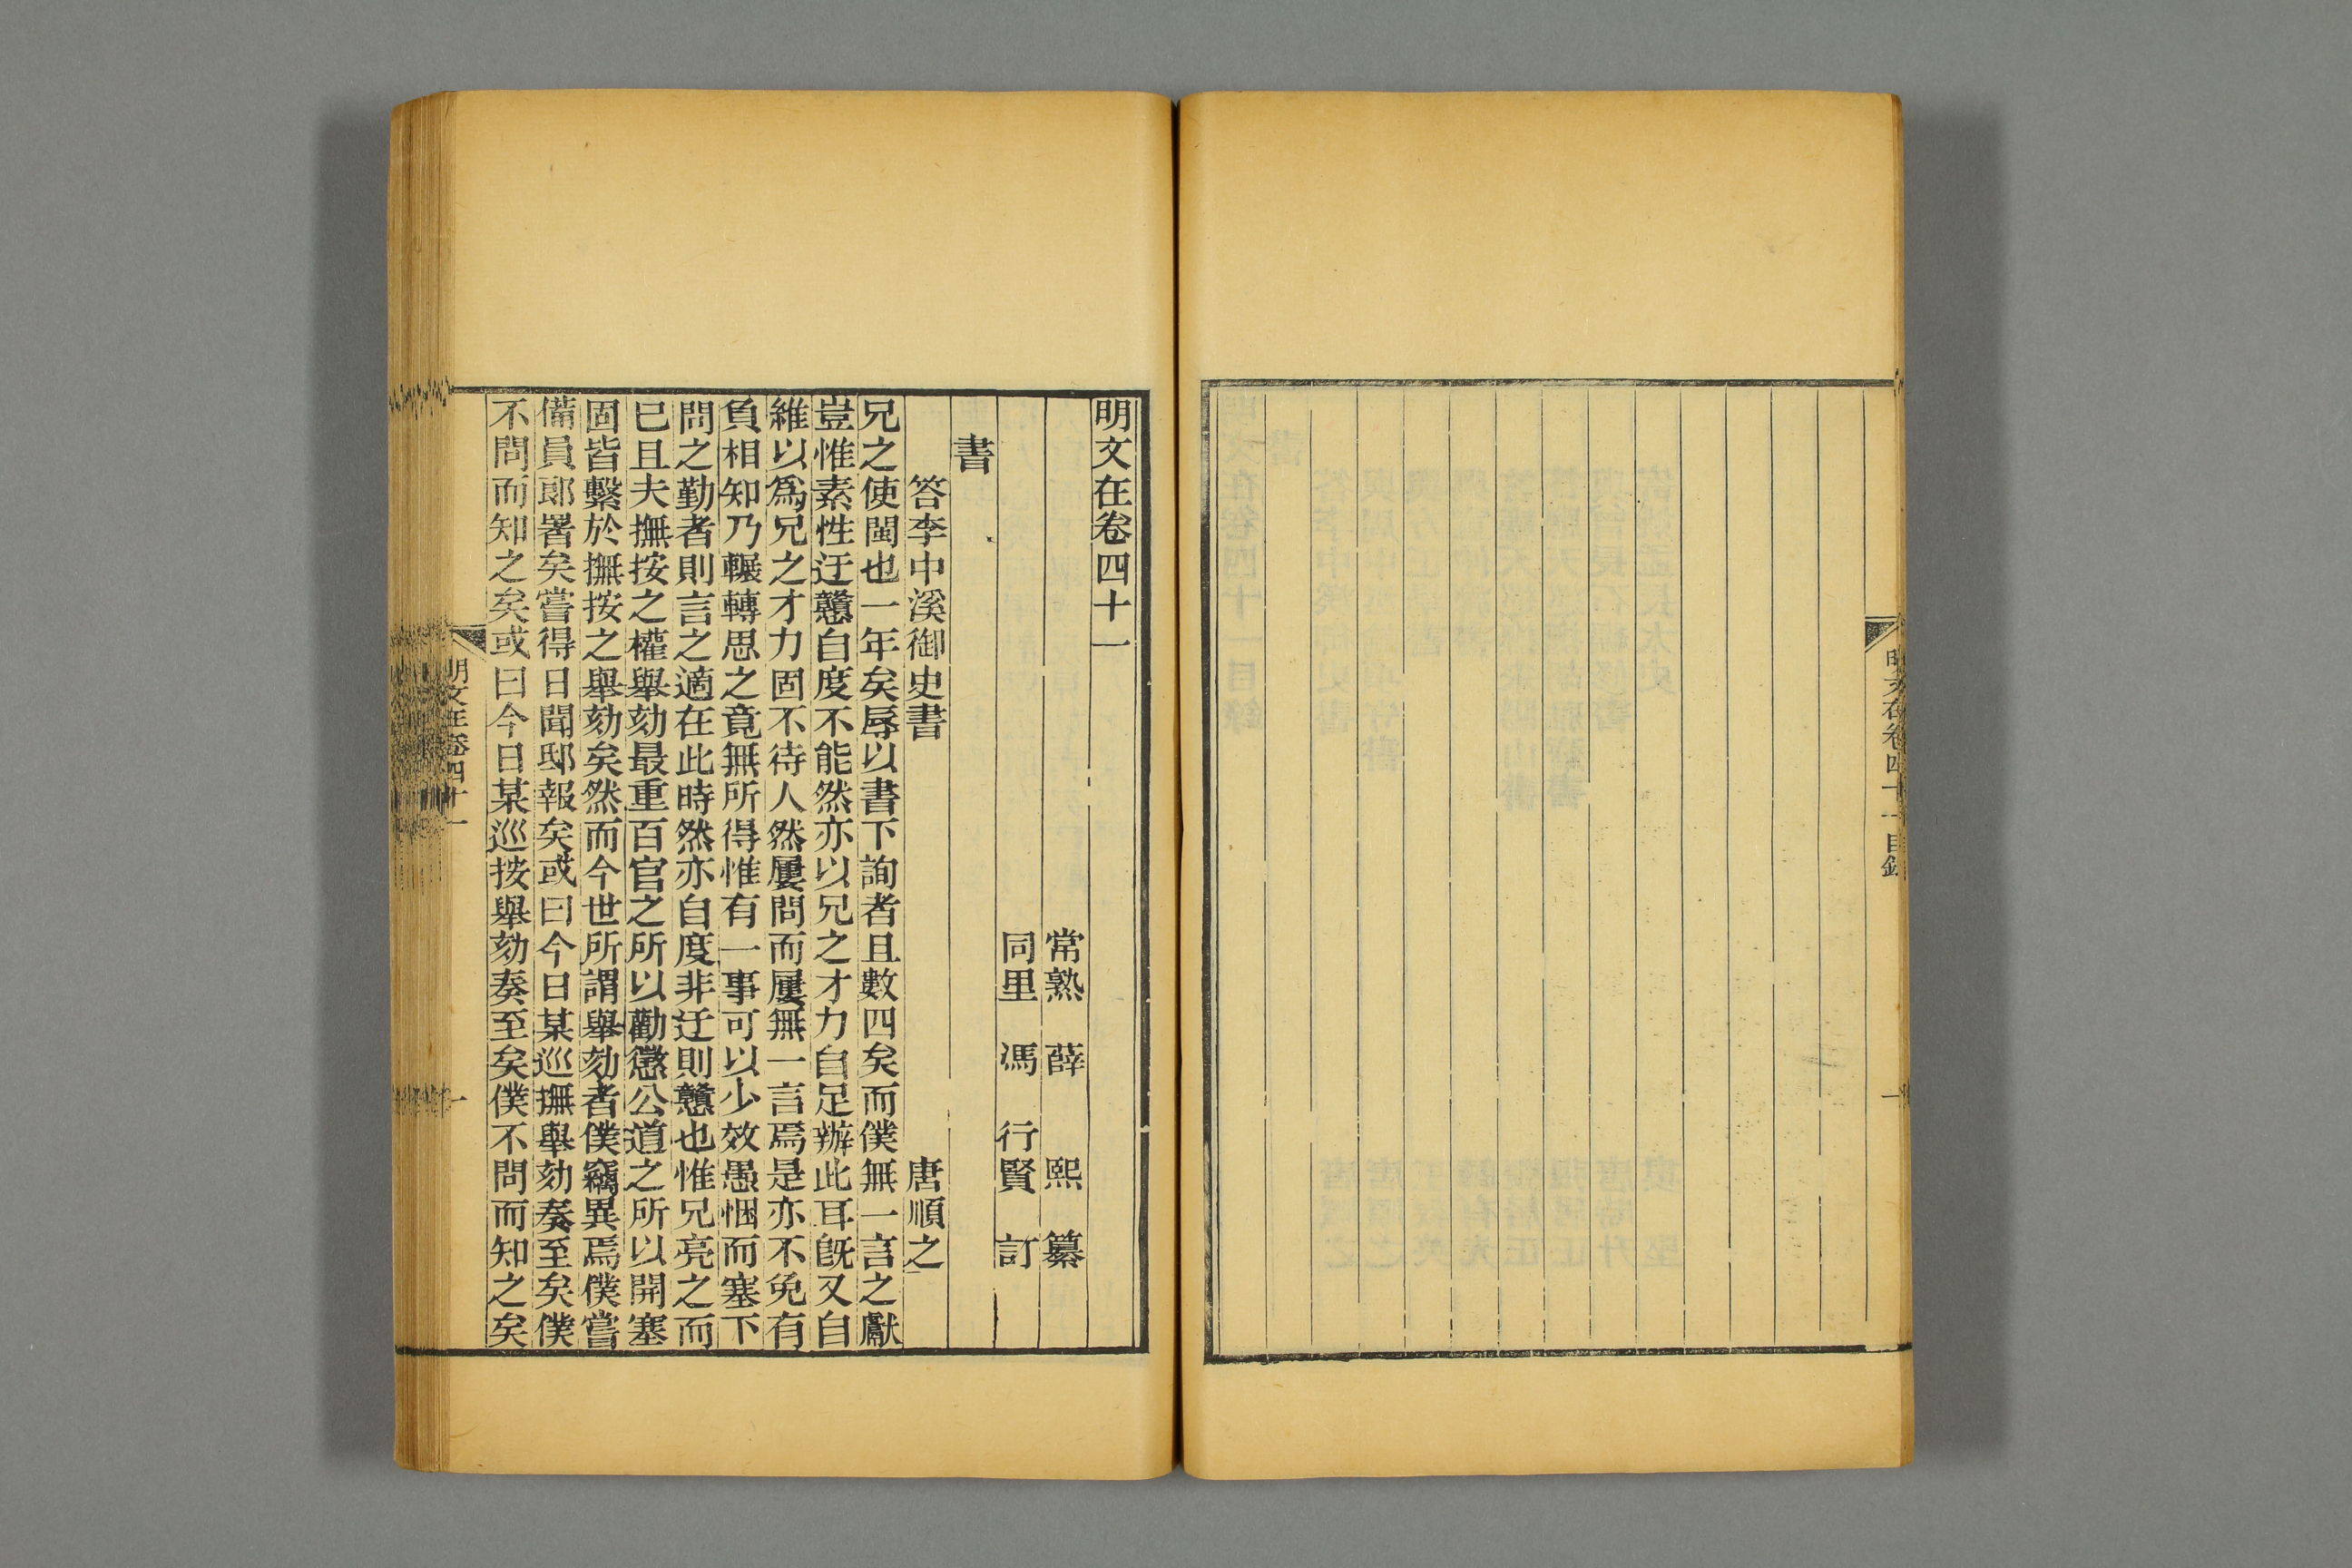 明文在卷四十一目錄
一
明文在卷四十一
常熟　薛　熙　纂
同里　馮　行賢　訂
書
答李中溪御史書　唐順之
兄之使閩也一年矣辱以書下詢者且數四矣而僕無一言之獻
豈惟素性迂戇自度不能然亦以兄之才力自足辦此耳旣又自
維以爲兄之才力固不待人然屢問而屢無一言焉是亦不免有
負相知乃輾轉思之竟無所得惟有一事可以少效愚悃而塞下
問之勤者則言之適在此時然亦自度非迂則戇也惟兄亮之而
已且夫撫按之權舉劾最重百官之所以勸懲公道之所以開塞
固皆繫於撫按之舉劾矣然而今世所謂舉劾者僕竊異焉僕嘗
備員郎署矣嘗得日聞邸報矣或曰今日某巡撫舉劾奏至矣僕
不問而知之矣或曰今日某巡按舉劾奏至矣僕不問而知之矣
明文在卷四十一
一